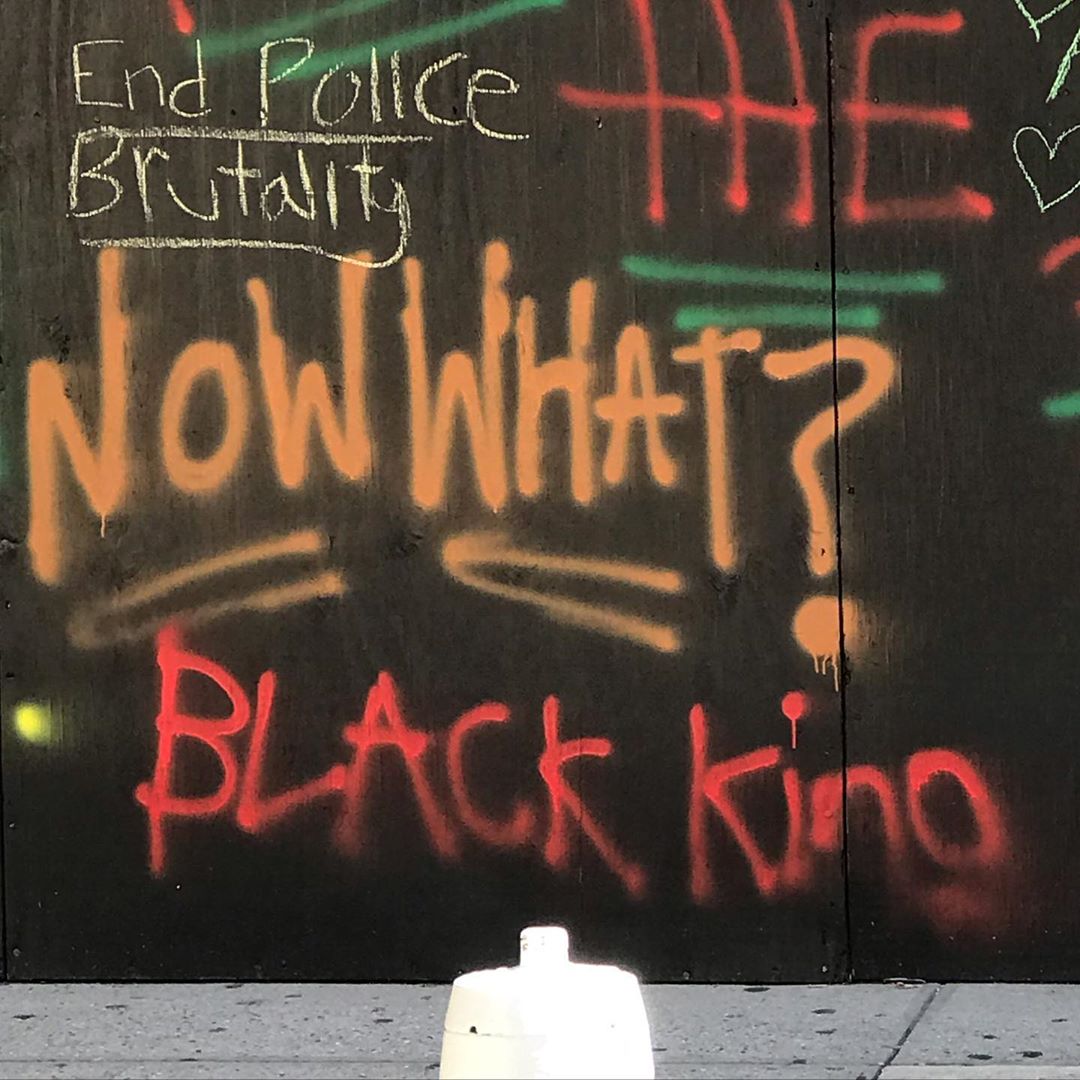 End Police
Brutality
THE
NOW WHAT?
BLACK King